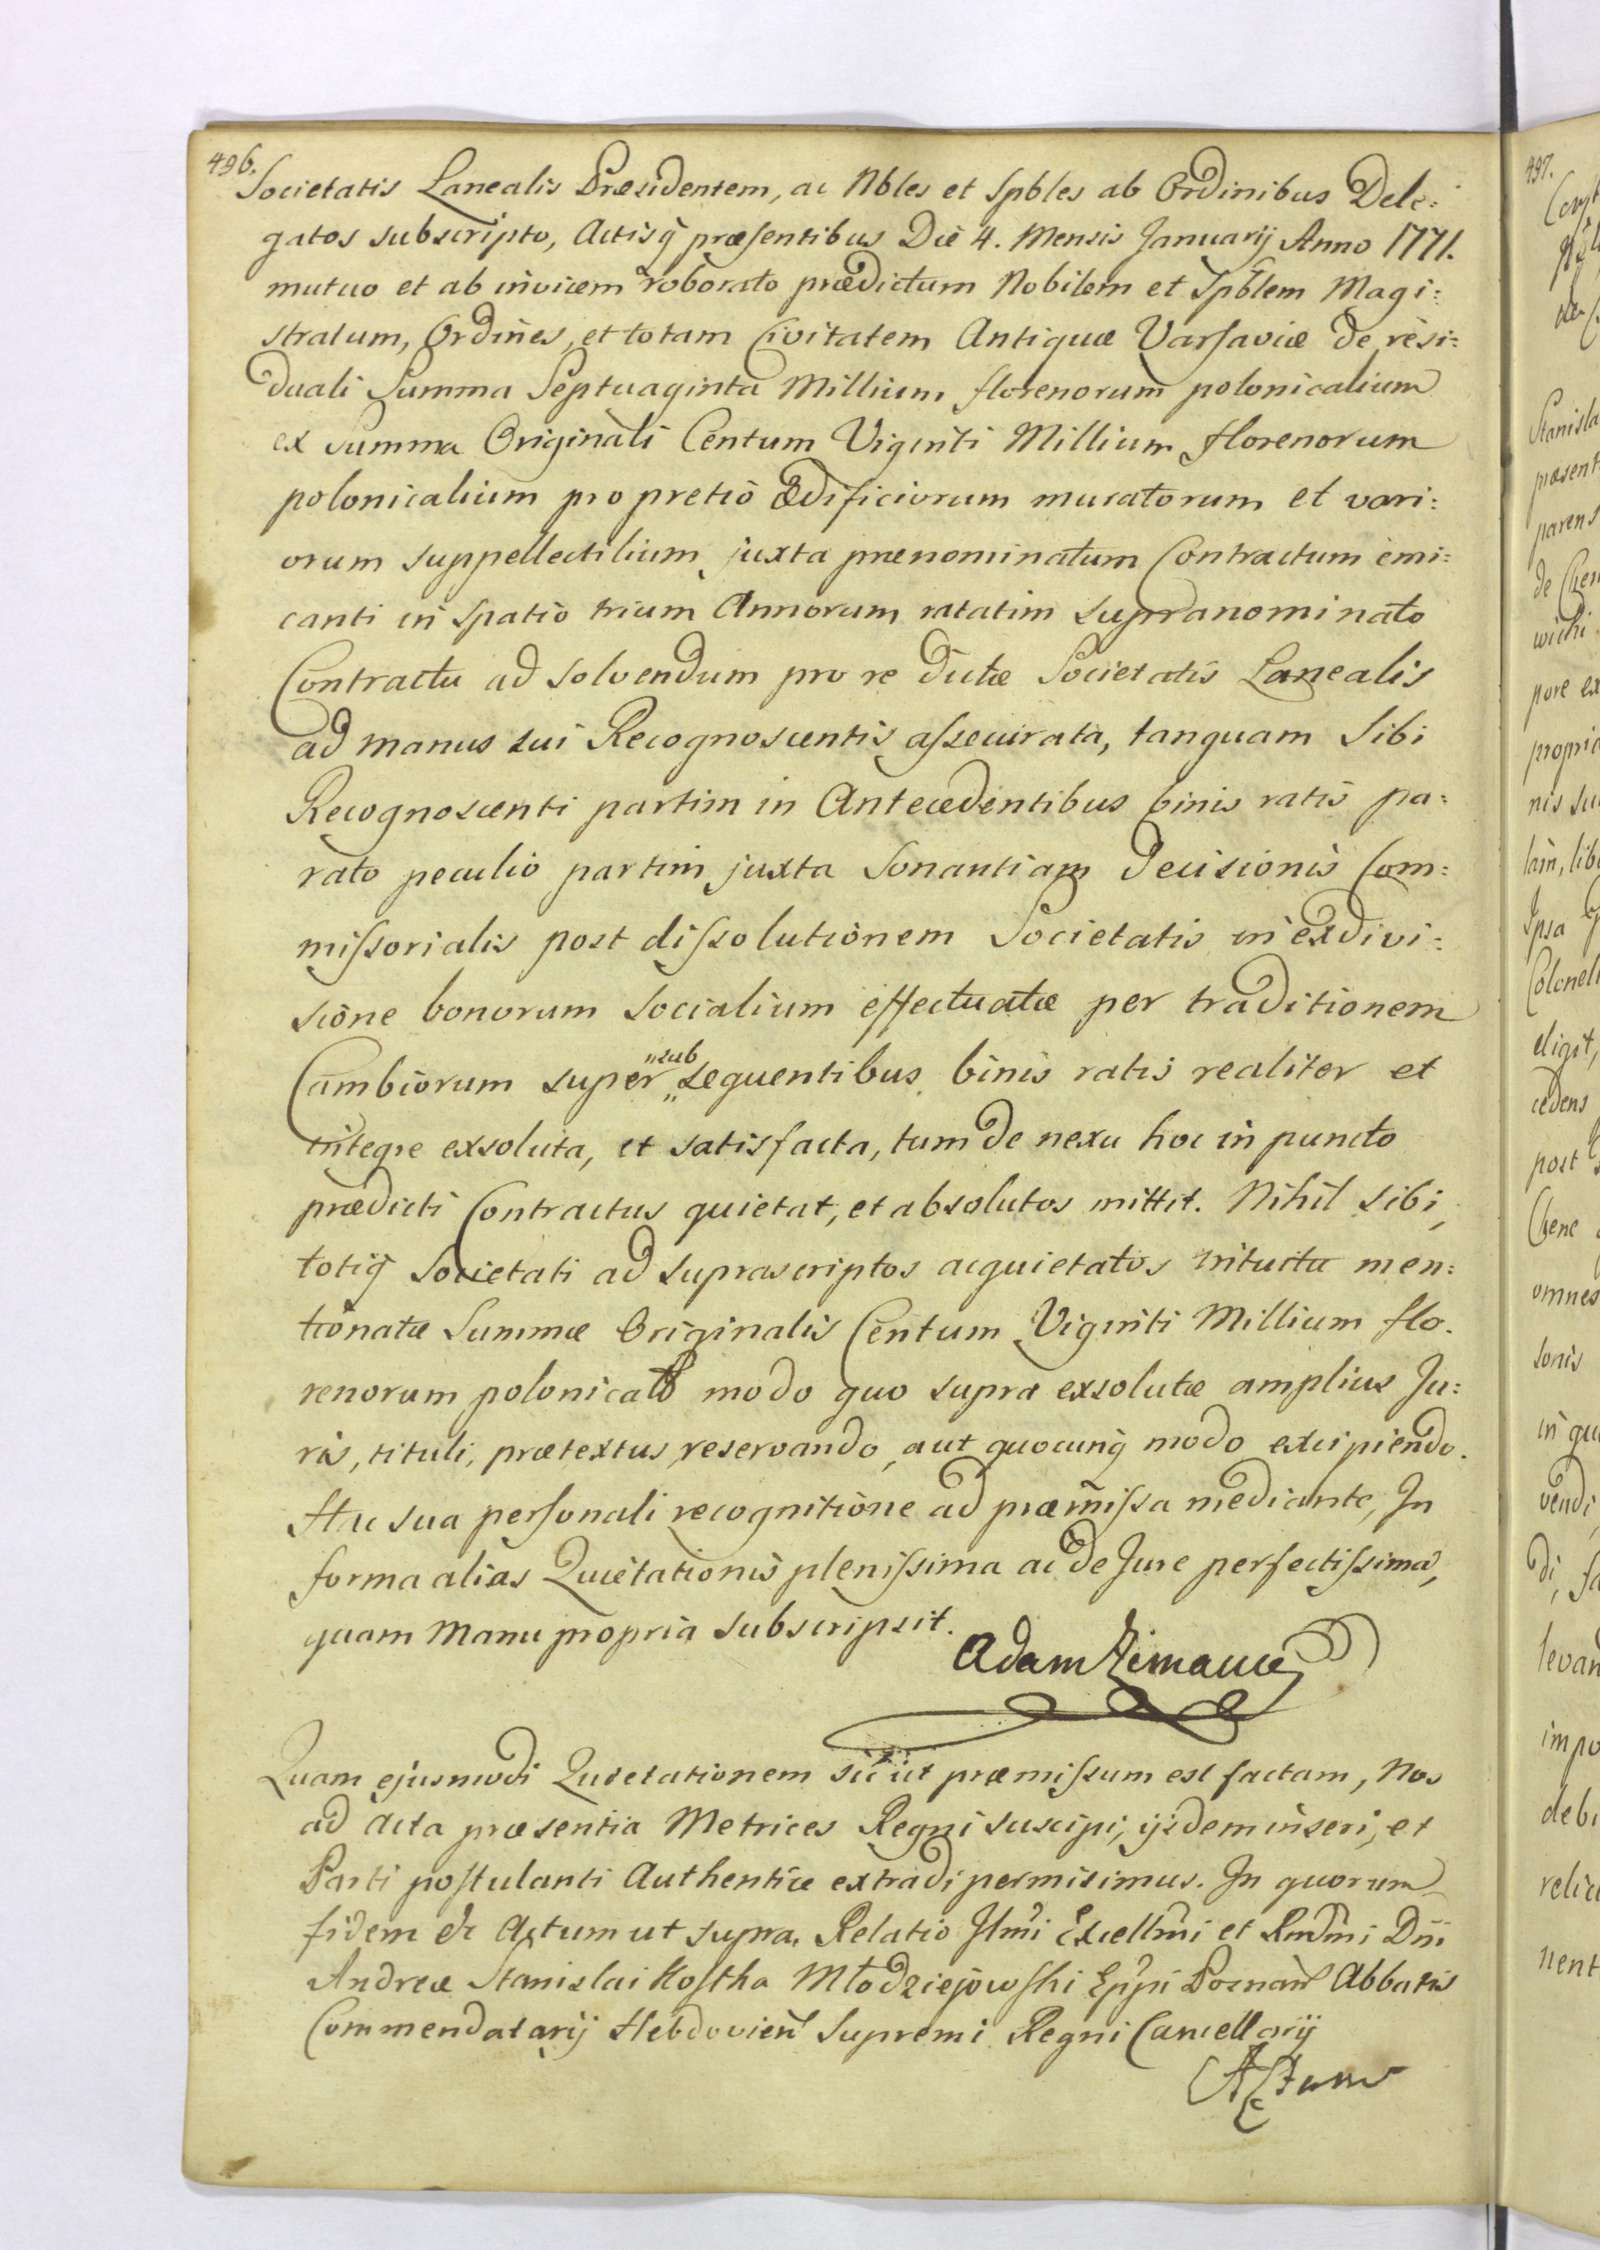 496.
Societatis Lanealis Præsidentem, ac Nbles et Spbles ab Ordinibus Dele:
gatos subscripto, Actisq̃ præsentibus Die 4. Mensis Januarij Anno 1771.
mutuo et ab invicem roborato prædictum Nobilem et Spblem Magi:
stratum, Ordines, et totam Civitatem Antiquæ Varsaviæ de resi:
duali Summa Septuaginta Millium florenorum polonicalium
ex Summa Originali Centum Viginti Millium florenorum
polonicalium pro pretio Ædificiorum muratorum et vari:
orum suppellectilium juxta prænominatum Contractum emi:
canti in spatio trium Annorum ratatim supranominato
Contractu ad solvendum pro re dictæ Societatis Lanealis
ad manus sui Recognoscentis assecurata, tanquam sibi
Recognoscenti partim in Antecedentibus binis ratis pa:
rato peculio partim juxta Sonantiam Decisionis Com:
missorialis post dissolutionem Societatis in exdivi:
sione bonorum socialium effectuatæ per traditionem
Cambiorum super „sub„ sequentibus binis ratis realiter et
integre exsoluta, et satisfacta, tum de nexu hoc in puncto
prædicti Contractus quietat, et absolutos mittit. Nihil sibi,
totiq̃ Societati ad suprascriptos acquietatos intuitu men:
tionatæ Summæ Originalis Centum Viginti Millium flo.
renorum polonical modo quo supra exsolutæ amplius Ju:
ris, tituli, prætextus, reservando, aut quocunq̃ modo excipiendo.
Hac sua personali recognitione ad præmissa mediante, In
forma alias Quietationis plenissima ac de Jure perfectissima,
quam Manu propria subscripsit.
Adam
Quam ejusmodi Quietationem sicut præmissum est factam, Nos
ad Acta præsentia Metrices Regni suscipi, ijsdem inseri, et
Parti postulanti Authentice extradi permisimus. In quorum
fidem &c Actum ut supra. Relatio Jlmi Excellmi et Rndmi Dni
Andreæ Stanislai Kostka Młodziejowski Eppi Posnan Abbatis
Commendatarij Hebdovien Supremi Regni Cancellarij
497.